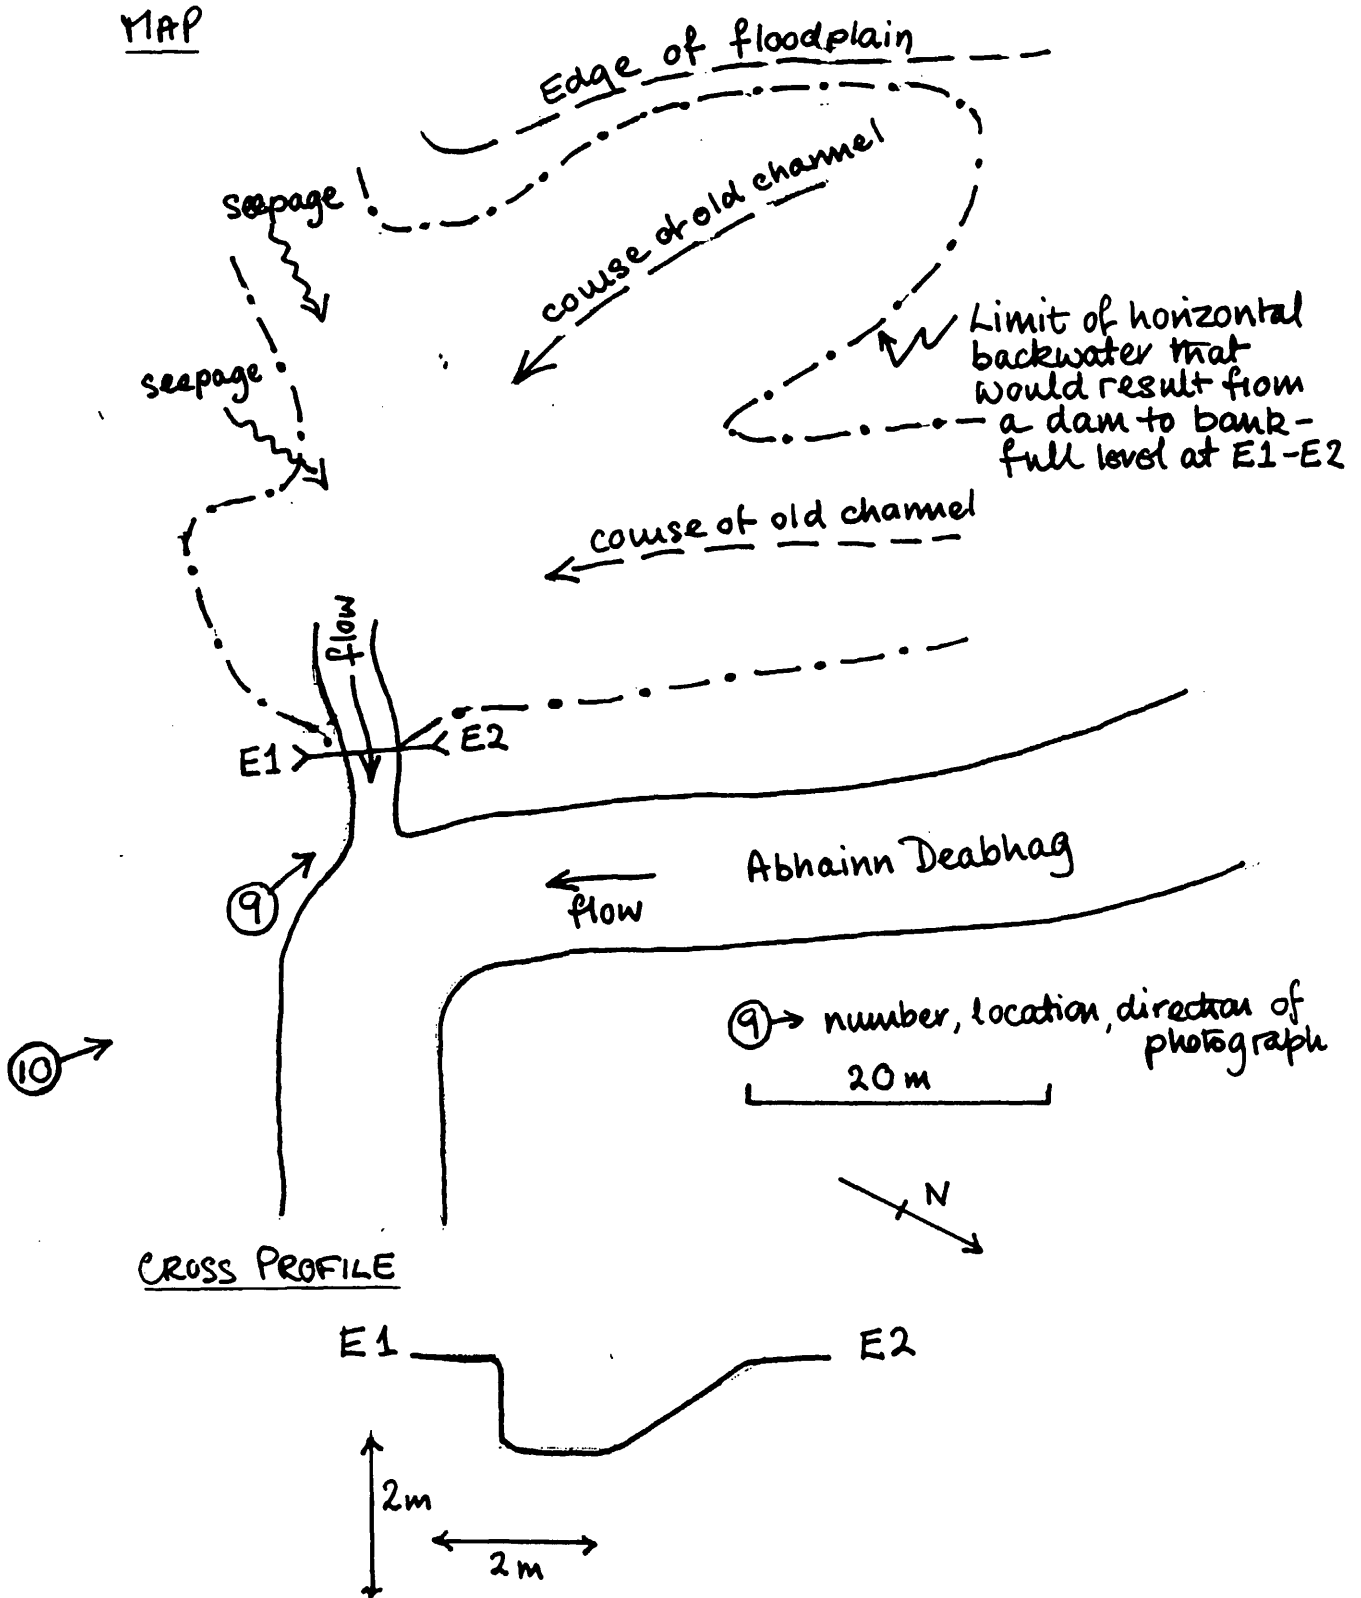 MAP
Edge of floodplain
seepage
course of old channel
seepage
Limit of horizontal
backwater that
would result from
a dam to bank-
full level at E1-E2
course of old channel
flow
E1
E2
Abhainn Deabhag
9
flow
9 number, location, direction of
photograph
10
20m
N
CROSS PROFILE
E1
E2
2m
2m